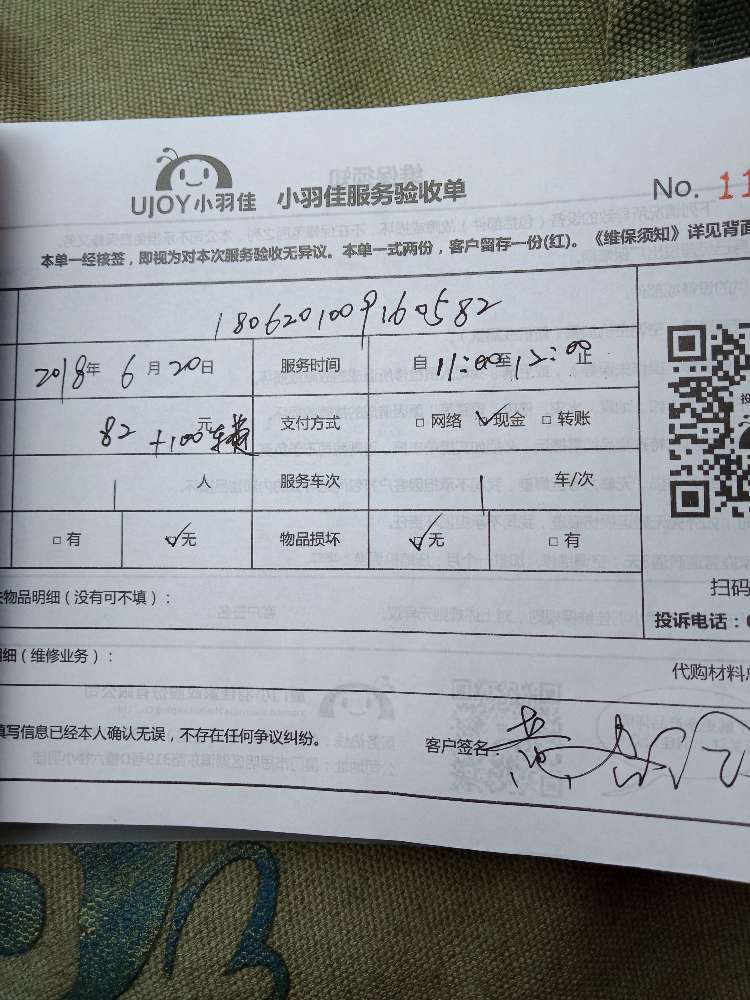 UJOY小羽佳 小羽佳服务验收单 No. 11
本单一经核签，即视为对本次服务验收无异议。本单一式两份，客户留存一份(红)。《维保须知》详见背面
1806201009160582
2018年 6月20日 服务时间 自 11:00至12:00止
82元+100车费 支付方式 □ 网络 ☑现金 □ 转账
1人 服务车次 1 车/次
□ 有 ☑无 物品损坏 ☑无 □ 有
物品明细（没有可不填）：
扫码
投诉电话：
细（维修业务）：
代购材料总
填写信息已经本人确认无误，不存在任何争议纠纷。 客户签名